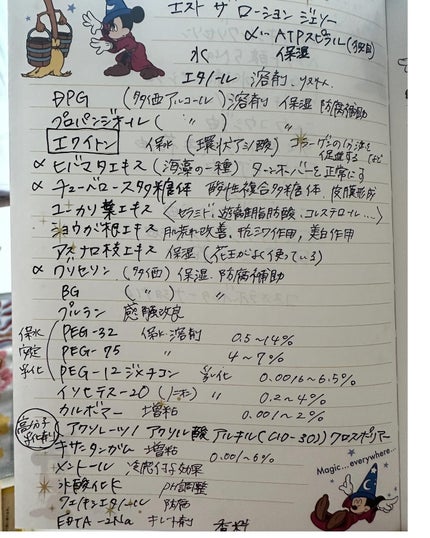 エスト ザ ローション ジェリー
α… ATPスピラル(独自)
水 保湿
エタノール 溶剤、
DPG (多価アルコール) 溶剤 保湿 防腐補助
プロパンジオール ( 〃 ) 〃
エクトイン 保水 (環状アミノ酸) コラーゲンの
促進する
α ヒバマタエキス (海藻の一種) ターンオーバーを正常にす
α チューベロース多糖体 酸性複合多糖体、皮膜形成
ユーカリ葉エキス 〈セラミド、遊離脂肪酸、コレステロール…〉
ショウガ根エキス 肌荒れ改善、抗シワ作用、美白作用
アスナロ枝エキス 保湿 (花王がよく使っている)
α グリセリン (多価) 保湿、防腐補助
BG ( 〃 ) 〃
プルラン 感触改良
保水
安定
乳化
PEG-32 保水 溶剤 0.5~14%
PEG-75 〃 4~7%
PEG-12ジメチコン 乳化 0.0016~6.5%
イソセテス-20 (ノニオン) 〃 0.2~4%
カルボマー 増粘 0.001~2%
高分子
乳化剤
アクリレーツ / アクリル酸アルキル(C10-30)) クロスポリマー
キサンタンガム 増粘 0.001~6%
メントール 冷感付与効果
水酸化K pH調整
フェノキシエタノール 防腐
EDTA-2Na キレート剤 香料
Magic...everywhere...